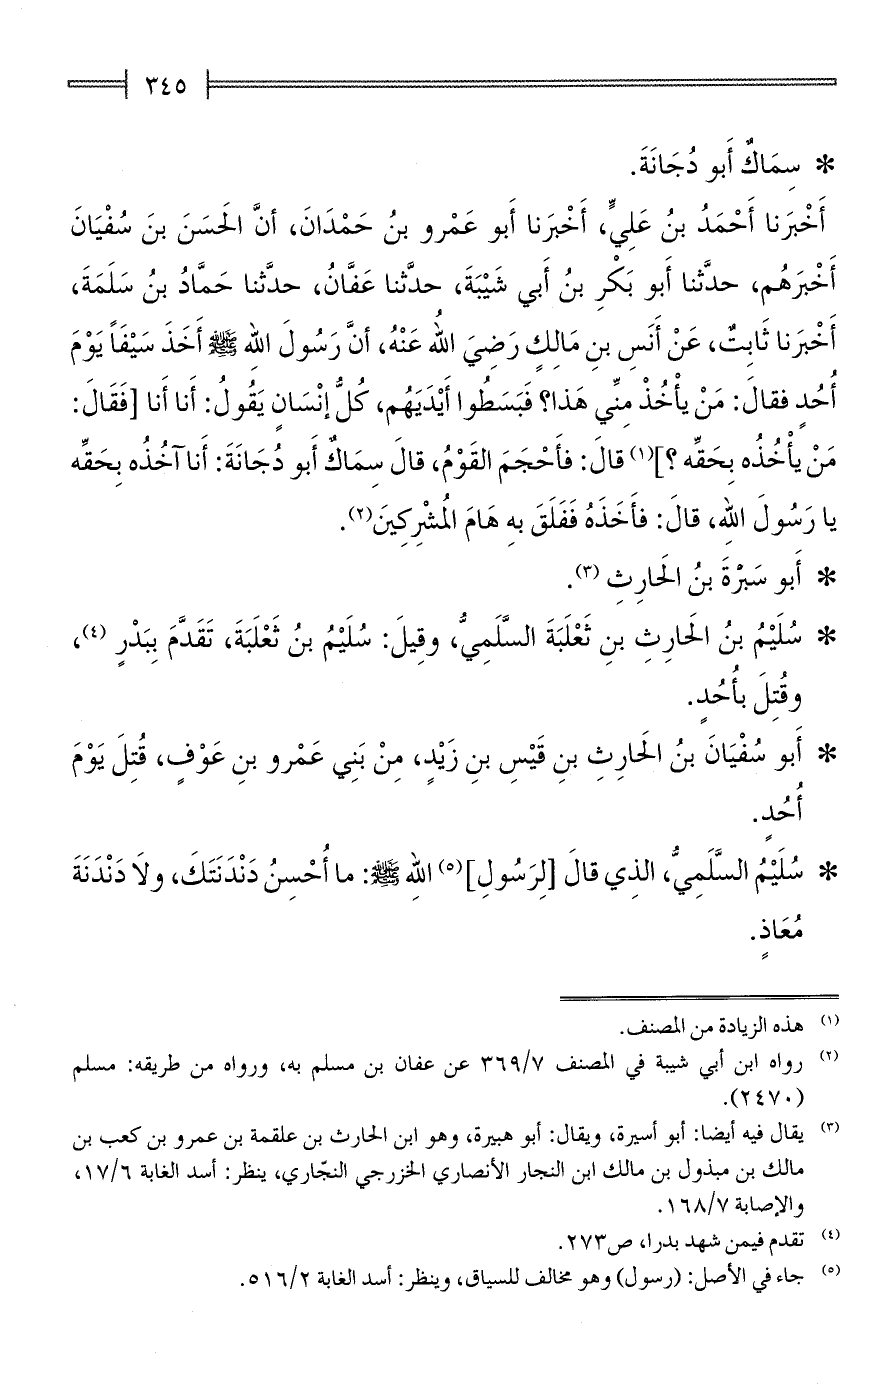 ٣٤٥
* سِمَاكٌ أَبو دُجَانَةَ.
أَخْبَرَنا أَحْمَدُ بنُ عَلِيٍّ، أَخْبَرَنا أَبو عَمْرو بنُ حَمْدَانَ، أنَّ الحَسَنَ بنَ سُفْيَانَ
أَخْبَرَهُم، حدَّثنا أبو بَكْرِ بنُ أبي شَيْبَةَ، حدَّثنا عَفَّانُ، حدَّثنا حَمَّادُ بنُ سَلَمَةَ،
أَخْبَرنا ثَابِتٌ، عَنْ أَنَسِ بنِ مَالِكٍ رَضِيَ اللهُ عَنْهُ، أنَّ رَسُولَ اللهِ ﷺ أَخَذَ سَيْفَاً يَوْمَ
أُحُدٍ فقالَ: مَنْ يأْخُذْ مِنِّي هَذا؟ فَبَسَطُوا أَيْدَيَهُم، كُلُّ إنْسَانٍ يَقُولُ: أنا أنا [فَقَالَ:
مَنْ يأْخُذُه بِحَقِّه ؟](١) قالَ: فأَحْجَمَ القَوْمُ، قالَ سِمَاكٌ أبو دُجَانَةَ: أنا آخُذُه بِحَقِّه
يا رَسُولَ اللهِ، قالَ: فأَخَذَهُ فَفَلَقَ بهِ هَامَ المُشْرِكِينَ(٢).
* أَبو سَبْرَةَ بنُ الحَارِثِ (٣).
* سُلَيْمُ بنُ الحَارِثِ بنِ ثَعْلَبَةَ السَّلَمِيُّ، وقِيلَ: سُلَيْمُ بنُ ثَعْلَبَةَ، تَقَدَّمَ بِبَدْرٍ (٤)،
وقُتِلَ بأُحُدٍ.
* أَبو سُفْيَانَ بنُ الحَارِثِ بنِ قَيْسِ بنِ زَيْدٍ، مِنْ بَنِي عَمْرو بنِ عَوْفٍ، قُتِلَ يَوْمَ
أُحُدٍ.
* سُلَيْمُ السَّلَمِيُّ، الذِي قالَ [لِرَسُولِ](٥) اللهِ ﷺ: ما أُحْسِنُ دَنْدَنَتَكَ، ولاَ دَنْدَنَةَ
مُعَاذٍ.
(١) هذه الزيادة من المصنف.
(٢) رواه ابن أبي شيبة في المصنف ٣٦٩/٧ عن عفان بن مسلم به، ورواه من طريقه: مسلم
(٢٤٧٠).
(٣) يقال فيه أيضا: أبو أسيرة، ويقال: أبو هبيرة، وهو ابن الحارث بن علقمة بن عمرو بن كعب بن
مالك بن مبذول بن مالك ابن النجار الأنصاري الخزرجي النجّاري، ينظر: أسد الغابة ١٧/٦،
والإصابة ١٦٨/٧.
(٤) تقدم فيمن شهد بدرا، ص٢٧٣.
(٥) جاء في الأصل: (رسول) وهو مخالف للسياق، وينظر: أسد الغابة ٥١٦/٢.